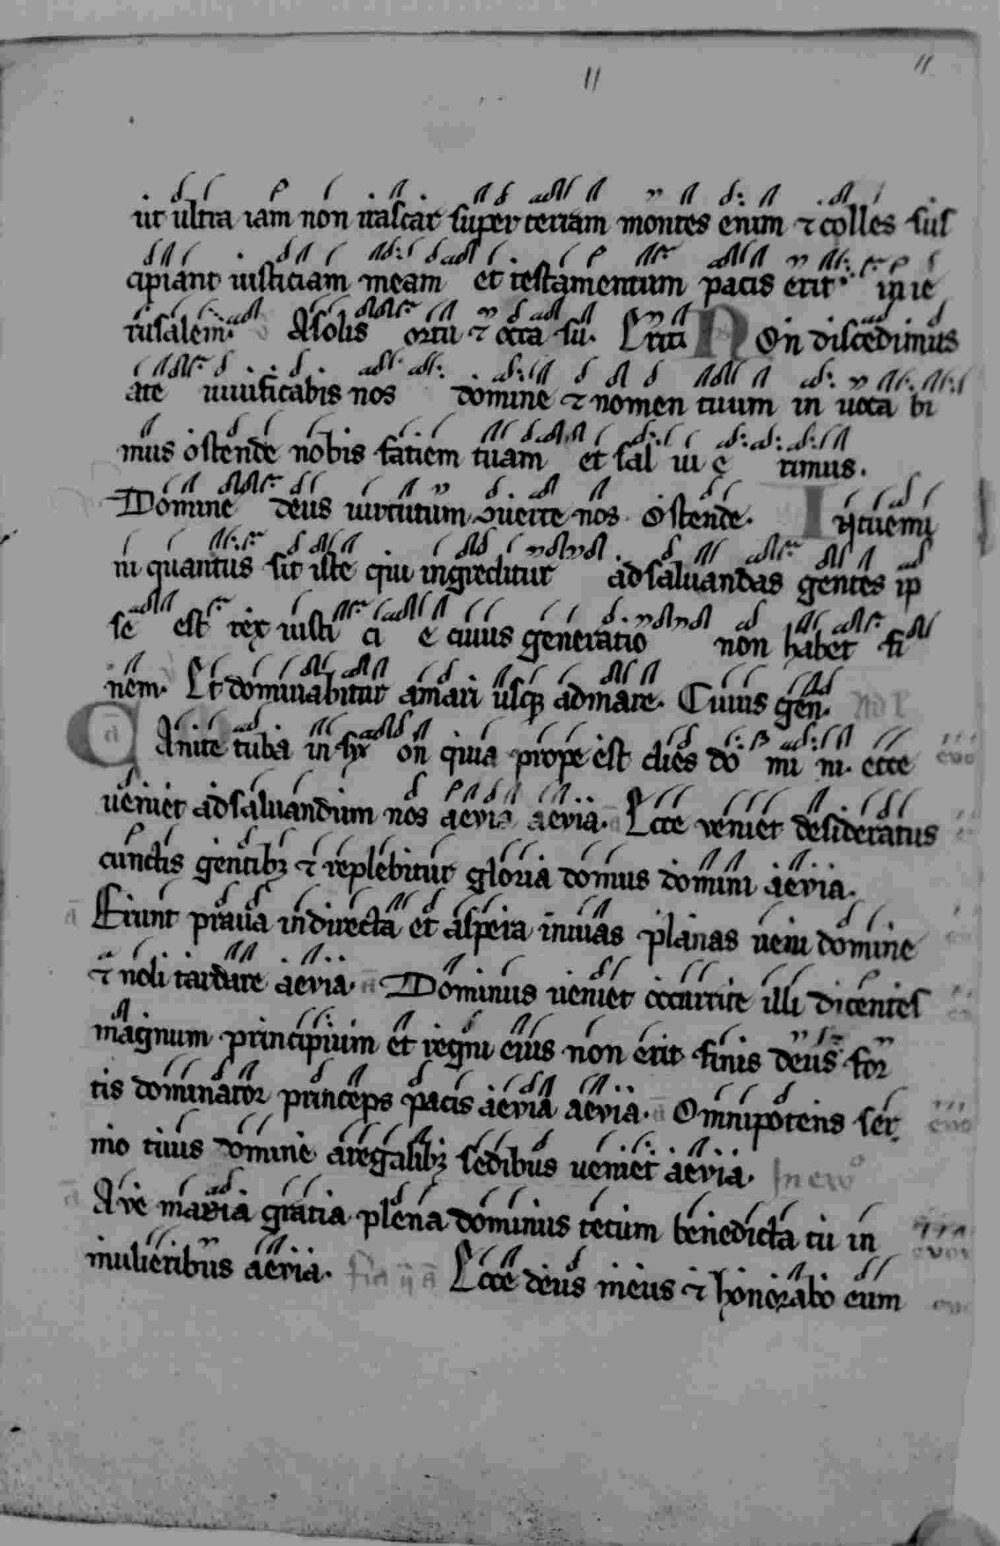 11 11
ut ultra iam non irascar super terram montes enim ⁊ colles sus
cipiant iusticiam meam et testamentum pacis erit in ie
rusalem. A solis ortu ⁊ occa su. Et iu NOn discedimus
ate uiuificabis nos domine ⁊ nomen tuum in uoca bi
mus ostende nobis faciem tuam et sal ui e rimus.
Domine deus uirtutum ɔuerte nos. Ostende. INtuemi
ni quantus sit iste qui ingreditur ad saluandas gentes ip
se est rex iusti ci e cuius generatio non habet fi
nem. Et dominabitur amari usq; admare. Cuius gen.
CAnite tuba in sy on quia prope est dies do mi ni. ecce
ueniet adsaluandum nos aeuia aeuia. Ecce veniet desideratus
cunctis gentib; ⁊ replebitur gloria domus domini aeuia.
Erunt praua indirecta et aspera inuias planas ueni domine
⁊ noli tardare aeuia. Dominus ueniet occurrite illi dicentes
magnum principium et regni eius non erit finis deus for
tis dominator princeps pacis aeuia aeuia. Omnipotens ser
mo tuus domine aregalib; sedibus ueniet aeuia. In euo
Ave maria gratia plena dominus tecum benedicta tu in
mulieribus aeuia. Ecce deus meus ⁊ honorabo eum